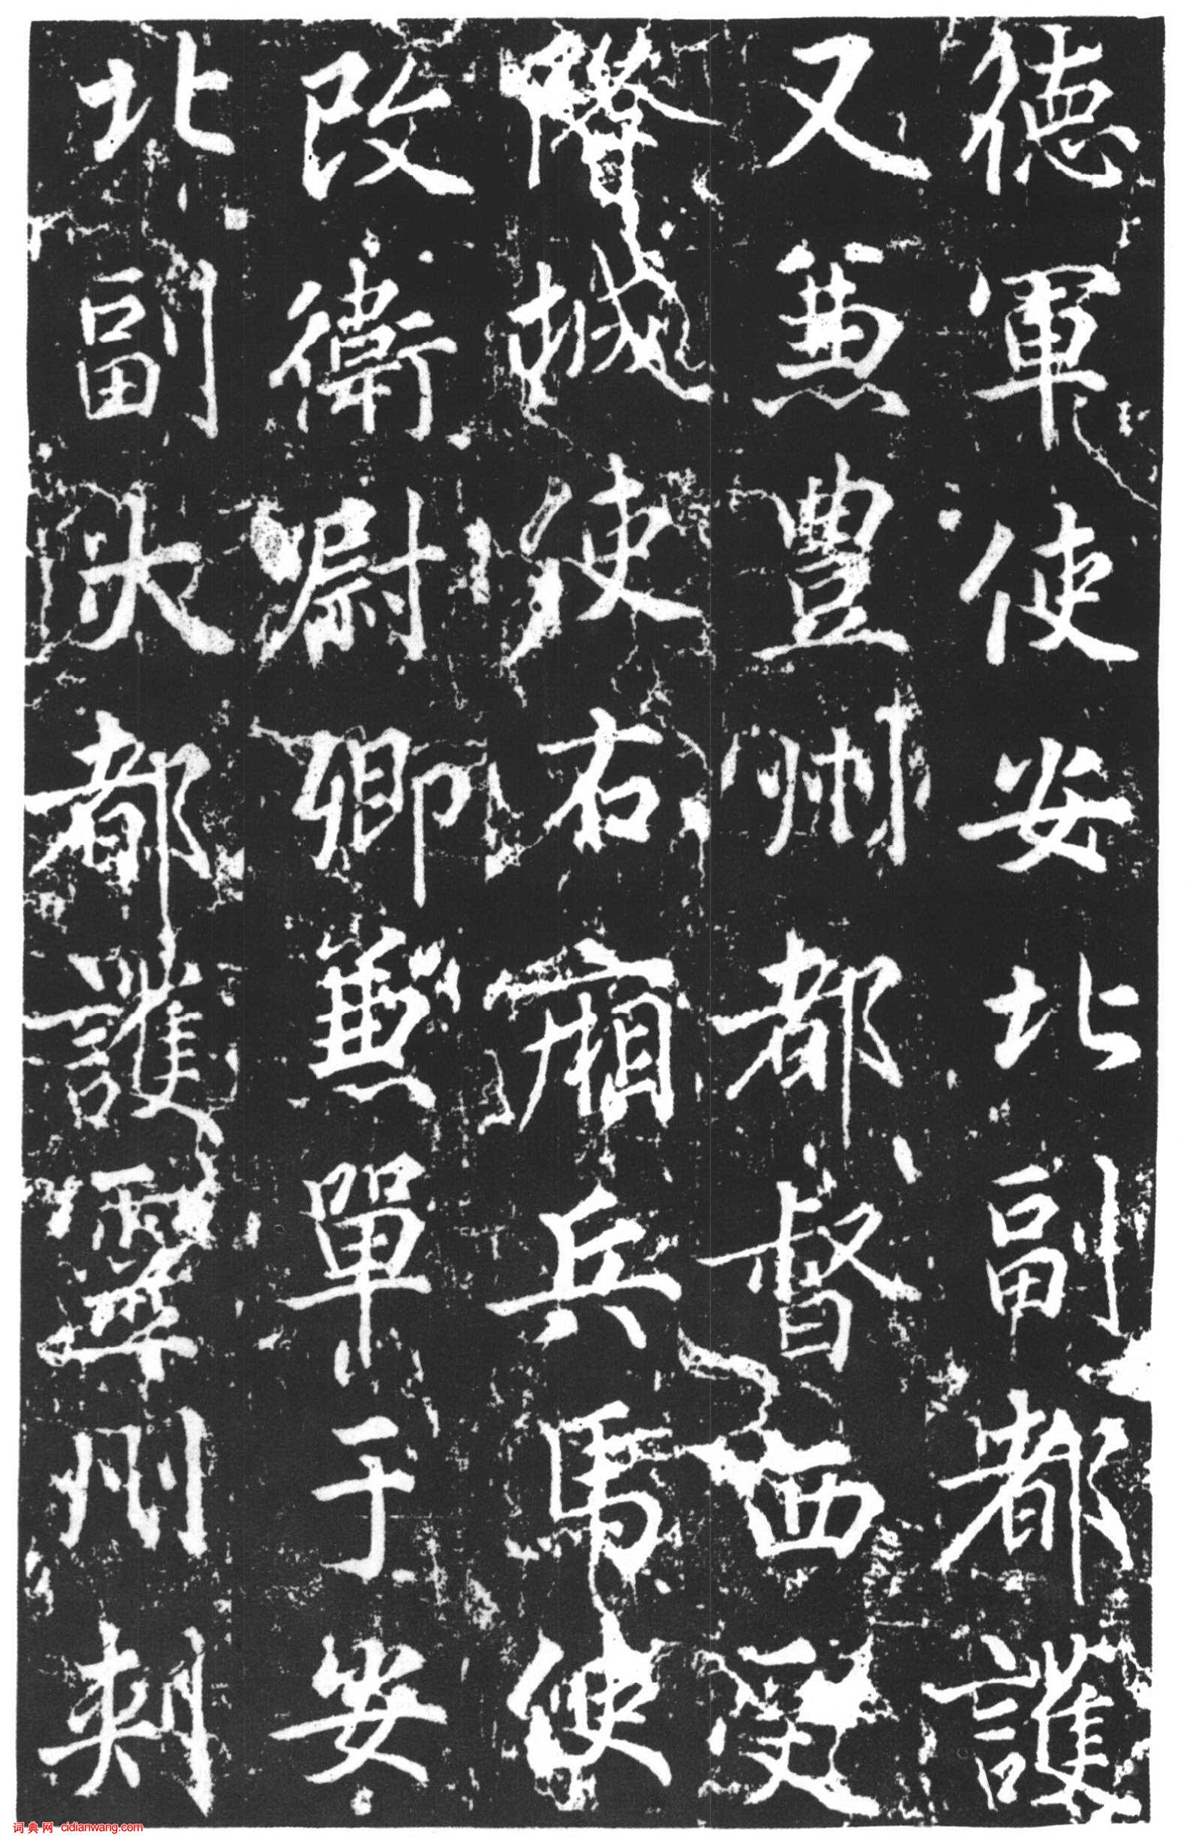 德軍使安北副都護
又兼豐州都督西受
降城使右廂兵馬使
改衛尉卿兼單于安
北副大都護靈州刺
词典网 cidianwang.com